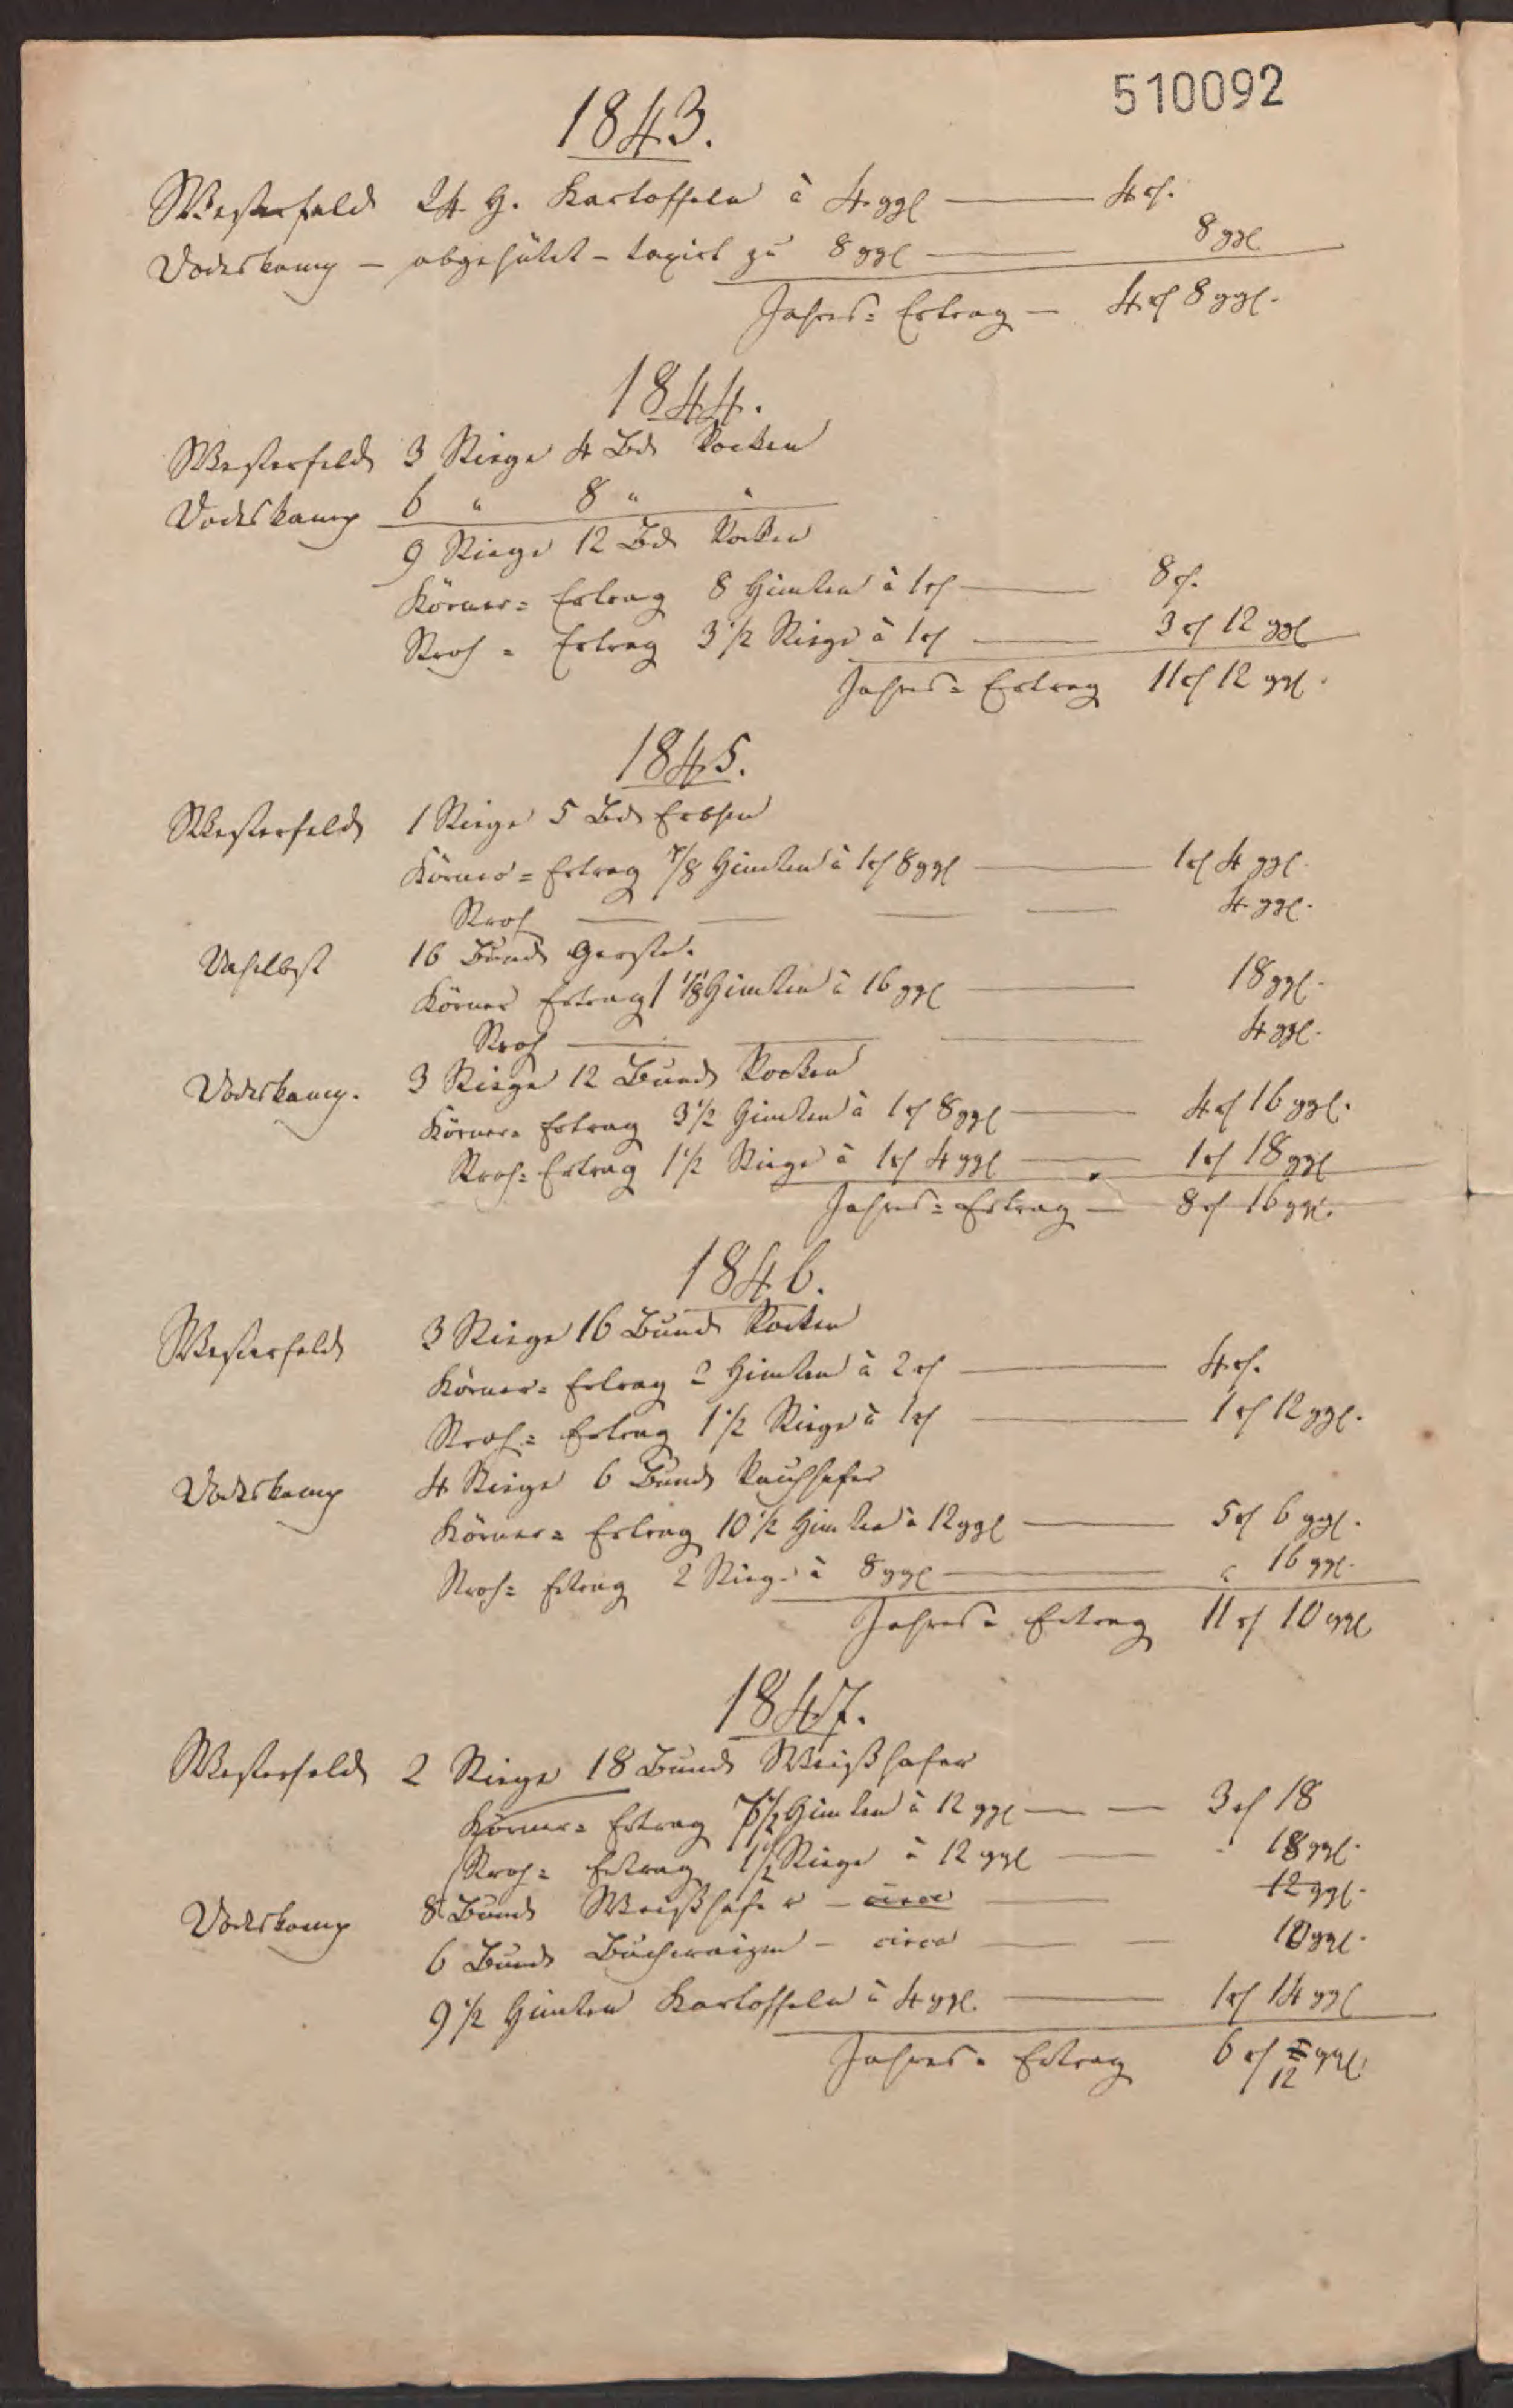 510092
1843.
Westerfeld 24 H. Kartoffeln à 4 ggl — 4 rf.
Voderkamp — abgehütet — taxirt zu 8 ggl — 8 ggl
Jahres=Ertrag — 4 rf 8 ggl.
1844.
Westerfeld 3 Stiege 4 Bd Rocken
Voderkamp 6 " 8 " "
9 Stiege 12 Bd Rocken
Körner=Ertrag 8 Himten à 1 rf — 8 rf.
Stroh=Ertrag 3 1/2 Stiege à 1 rf — 3 rf 12 ggl
Jahres=Ertrag 11 rf 12 ggl.
1845.
Westerfeld 1 Stiege 5 Bd Erbsen
Körner=Ertrag 7/8 Himten à 1 rf 8 ggl — 1 rf 4 ggl.
Stroh — — — — 4 ggl.
Daselbst 16 Bund Gerste.
Körner Ertrag 1 1/8 Himten à 16 ggl — 18 ggl.
Stroh — — — 4 ggl.
Voderkamp. 3 Stiege 12 Bund Rocken
Körner=Ertrag 3 1/2 Himten à 1 rf 8 ggl — 4 rf 16 ggl.
Stroh=Ertrag 1 1/2 Stiege à 1 rf 4 ggl — 1 rf 18 ggl
Jahres=Ertrag — 8 rf 16 ggl.
1846.
Westerfeld 3 Stiege 16 Bund Rocken
Körner=Ertrag 2 Himten à 2 rf — 4 rf.
Stroh=Ertrag 1 1/2 Stiege à 1 rf — 1 rf 12 ggl.
Voderkamp 4 Stiege 6 Bund Rauhhafer
Körner=Ertrag 10 1/2 Himten à 12 ggl — 5 rf 6 ggl.
Stroh=Ertrag 2 Stiege à 8 ggl — " 16 ggl.
Jahres=Ertrag 11 rf 10 ggl
1847.
Westerfeld 2 Stiege 18 Bund Weißhafer
Körner=Ertrag 7 1/2 Himten à 12 ggl — — 3 rf 18
Stroh=Ertrag 1 1/2 Stiege à 12 ggl — 18 ggl.
Voderkamp 8 Bund Weißhafer — circa — 12 ggl.
6 Bund Buchweizen — circa — — 10 ggl.
9 1/2 Himten Kartoffeln à 4 ggl. — 1 rf 14 ggl
Jahres=Ertrag 6 rf ggl.
12